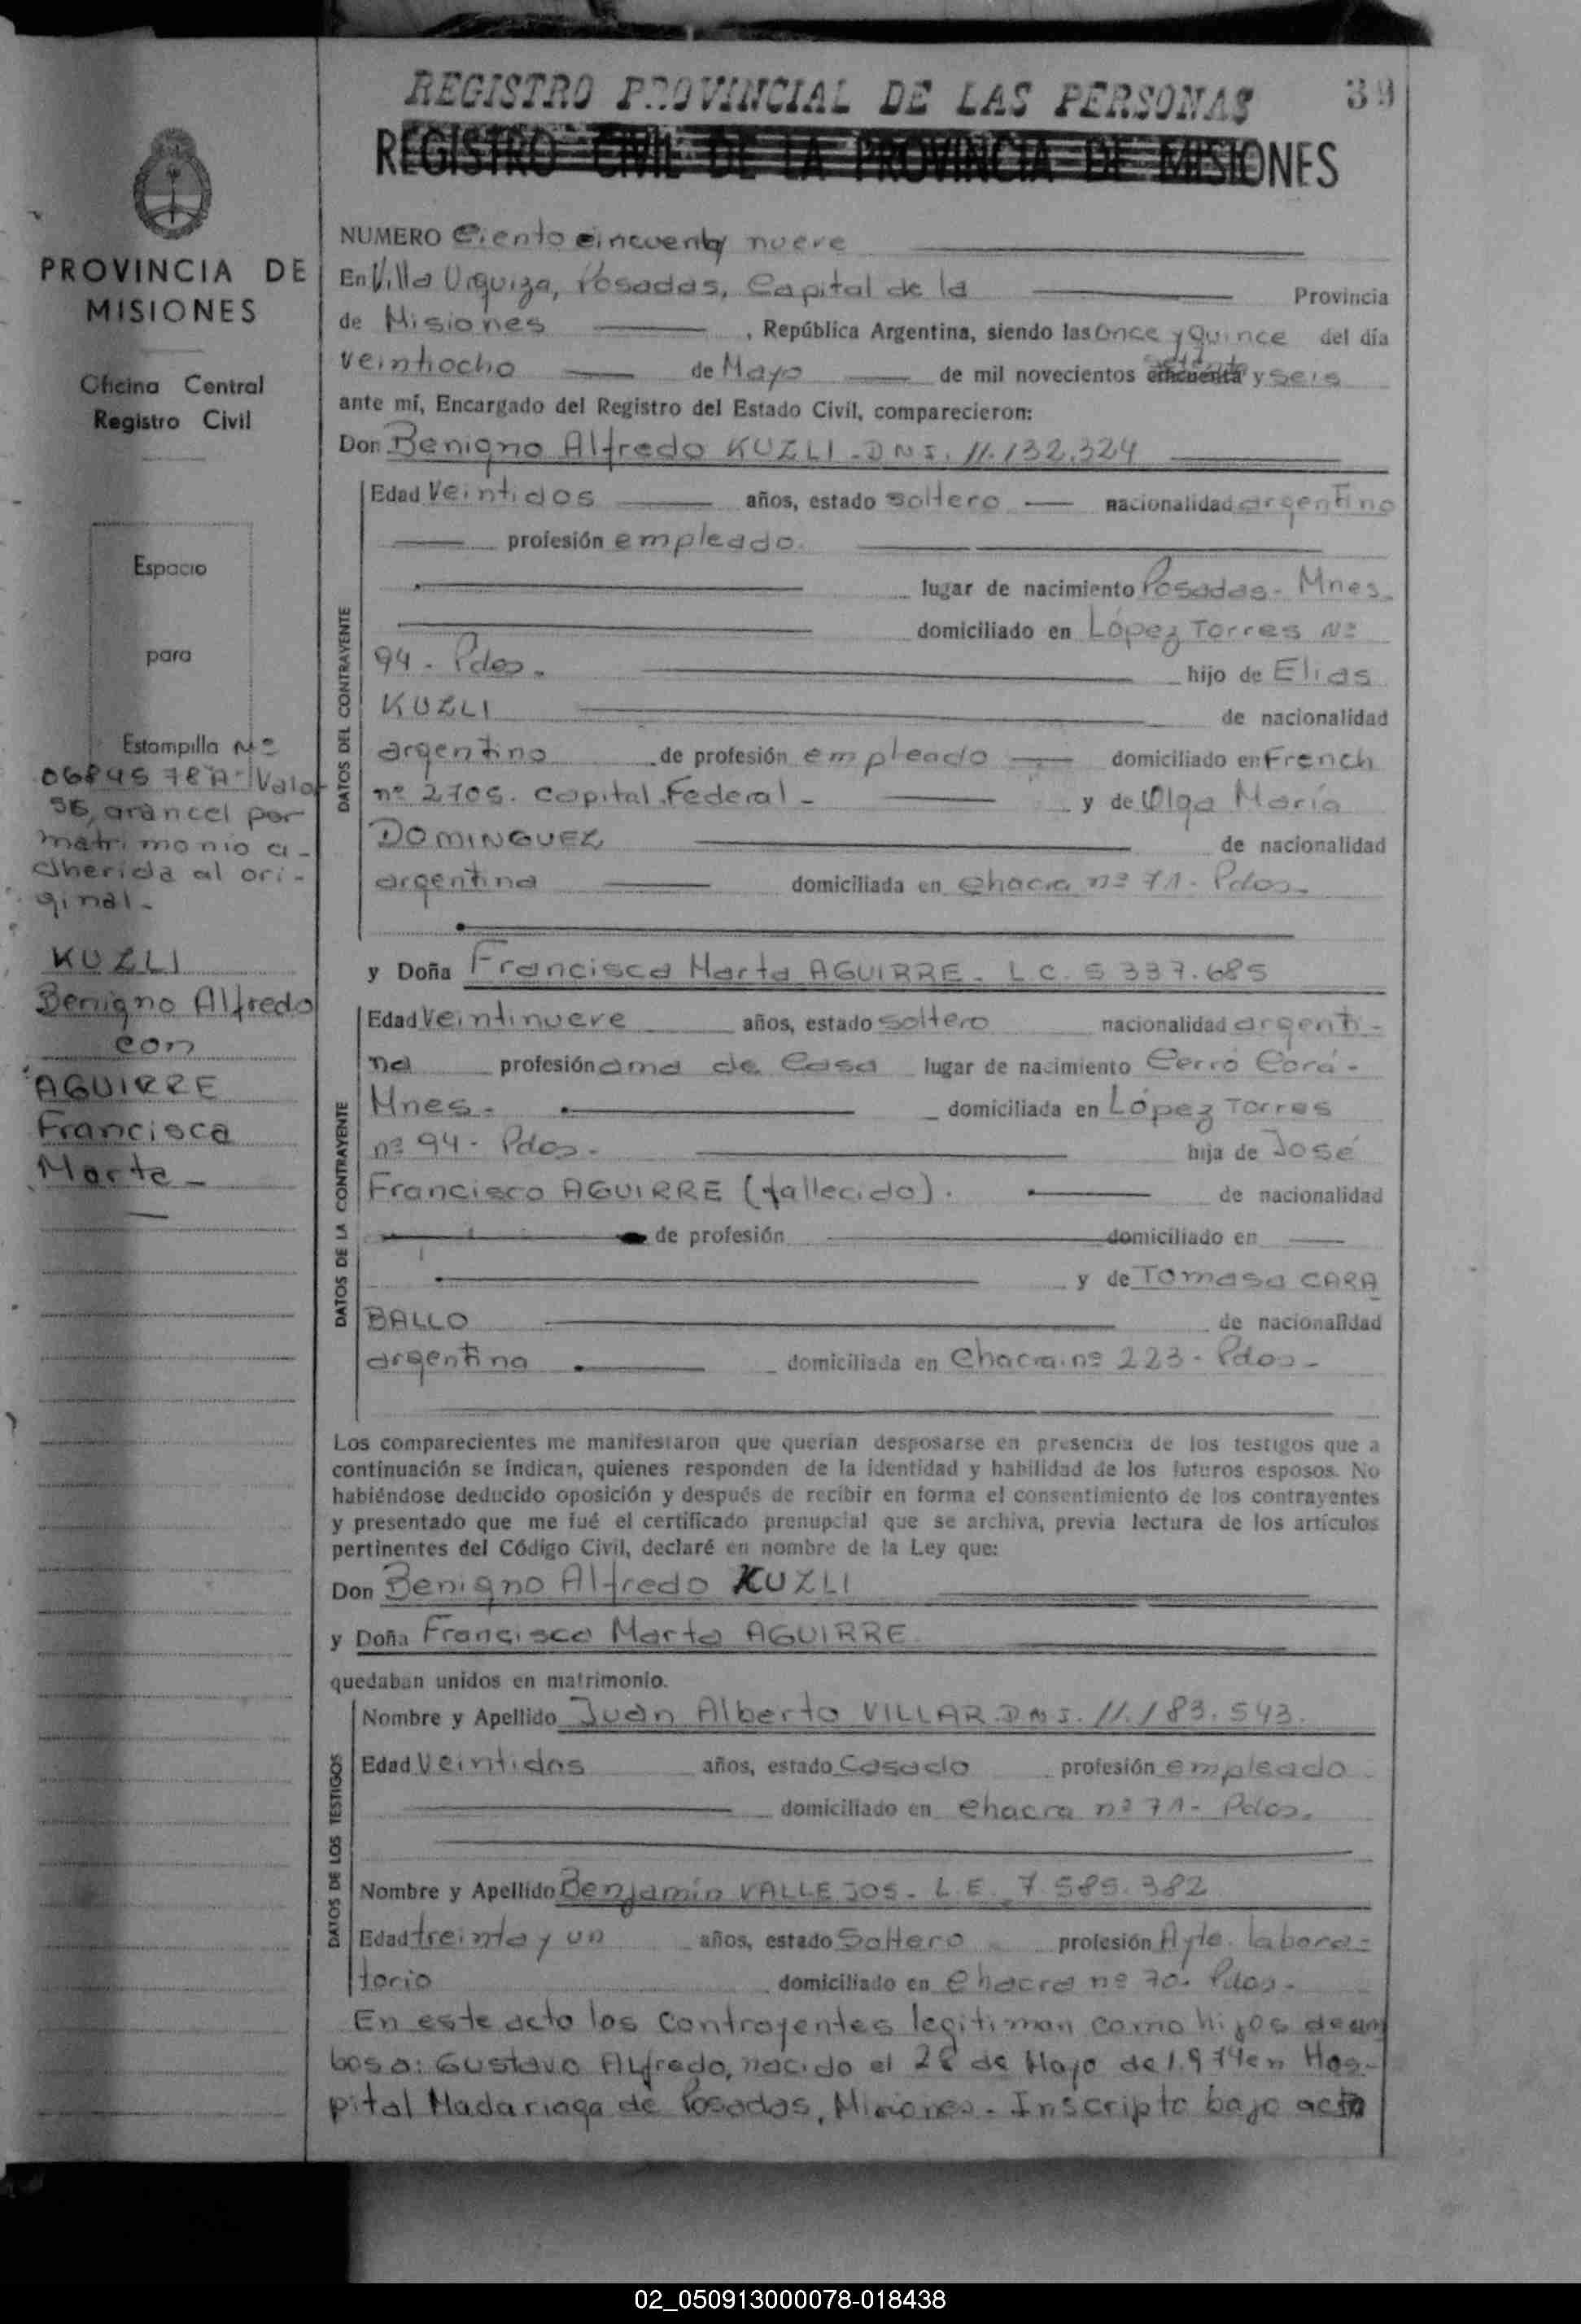 REGISTRO PROVINCIAL DE LAS PERSONAS
39
REGISTRO CIVIL DE LA PROVINCIA DE MISIONES
PROVINCIA DE
MISIONES
Oficina Central
Registro Civil
Espacio
para
Estampilla Nº
0684578"A" Valor
$6, arancel por
matrimonio a-
dherida al ori-
ginal-
KUZLI
Benigno Alfredo
con
AGUIRRE
Francisca
Marta-
NUMERO Ciento cincuenta y nueve
En Villa Urquiza, Posadas, Capital de la Provincia
de Misiones , República Argentina, siendo las once y quince del día
veintiocho de Mayo de mil novecientos cincuenta setenta y seis
ante mí, Encargado del Registro del Estado Civil, comparecieron:
Don Benigno Alfredo KUZLI - D N I. 11.132.324
DATOS DEL CONTRAYENTE
Edad Veintidos años, estado soltero nacionalidad argentino
profesión empleado.
lugar de nacimiento Posadas - Mnes.
domiciliado en López Torres Nº
94 - Pdas. hijo de Elias
KUZLI de nacionalidad
argentino de profesión empleado domiciliado en French
nº 2705. Capital Federal - y de Olga María
DOMINGUEZ de nacionalidad
argentina domiciliada en chacra nº 71 - Pdas.
y Doña Francisca Marta AGUIRRE - L.C. 5 337.685
DATOS DE LA CONTRAYENTE
Edad Veintinueve años, estado soltero nacionalidad argenti-
na profesión ama de casa lugar de nacimiento Cerro Corá -
Mnes. domiciliada en López Torres
nº 94 - Pdas. hija de José
Francisco AGUIRRE (fallecido). de nacionalidad
de profesión domiciliado en
y de Tomasa CARA
BALLO de nacionalidad
argentina domiciliada en Chacra nº 223 - Pdas-
Los comparecientes me manifestaron que querían desposarse en presencia de los testigos que a
continuación se indican, quienes responden de la identidad y habilidad de los futuros esposos. No
habiéndose deducido oposición y después de recibir en forma el consentimiento de los contrayentes
y presentado que me fué el certificado prenupcial que se archiva, previa lectura de los artículos
pertinentes del Código Civil, declaré en nombre de la Ley que:
Don Benigno Alfredo KUZLI
y Doña Francisca Marta AGUIRRE
quedaban unidos en matrimonio.
DATOS DE LOS TESTIGOS
Nombre y Apellido Juan Alberto VILLAR. D N I. 11.183.543.
Edad Veintidos años, estado Casado profesión empleado
domiciliado en chacra nº 71 - Pdas.
Nombre y Apellido Benjamín VALLEJOS - L.E. 7.585.382
Edad treinta y un años, estado Soltero profesión Ayte. labora-
torio domiciliado en Chacra nº 70. Pdas-
En este acto los contrayentes legitiman como hijos de am
bos a: Gustavo Alfredo, nacido el 28 de Mayo de 1.974 en Hos-
pital Madariaga de Posadas, Misiones - Inscripto bajo acta
02_050913000078-018438